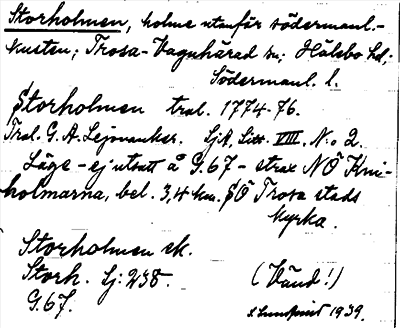 Storholmen, holme utanför södermanl.-
kusten; Trosa-Vagnhärad sn; Hölebo hd;
Södermanl. l.
Storholmen tral. 1774-76.
Tral. G. A. Lejonanker. LjA, Litt. VIII. N:o 2.
Läge - ej utsatt å G.67 - strax NÖ Kni-
holmarna, bel. 3,4 km. SÖ Trosa stads
kyrka.
Storholmen sk.
Stork. Lj: 238.
G.67.
(Vänd!)
1939.